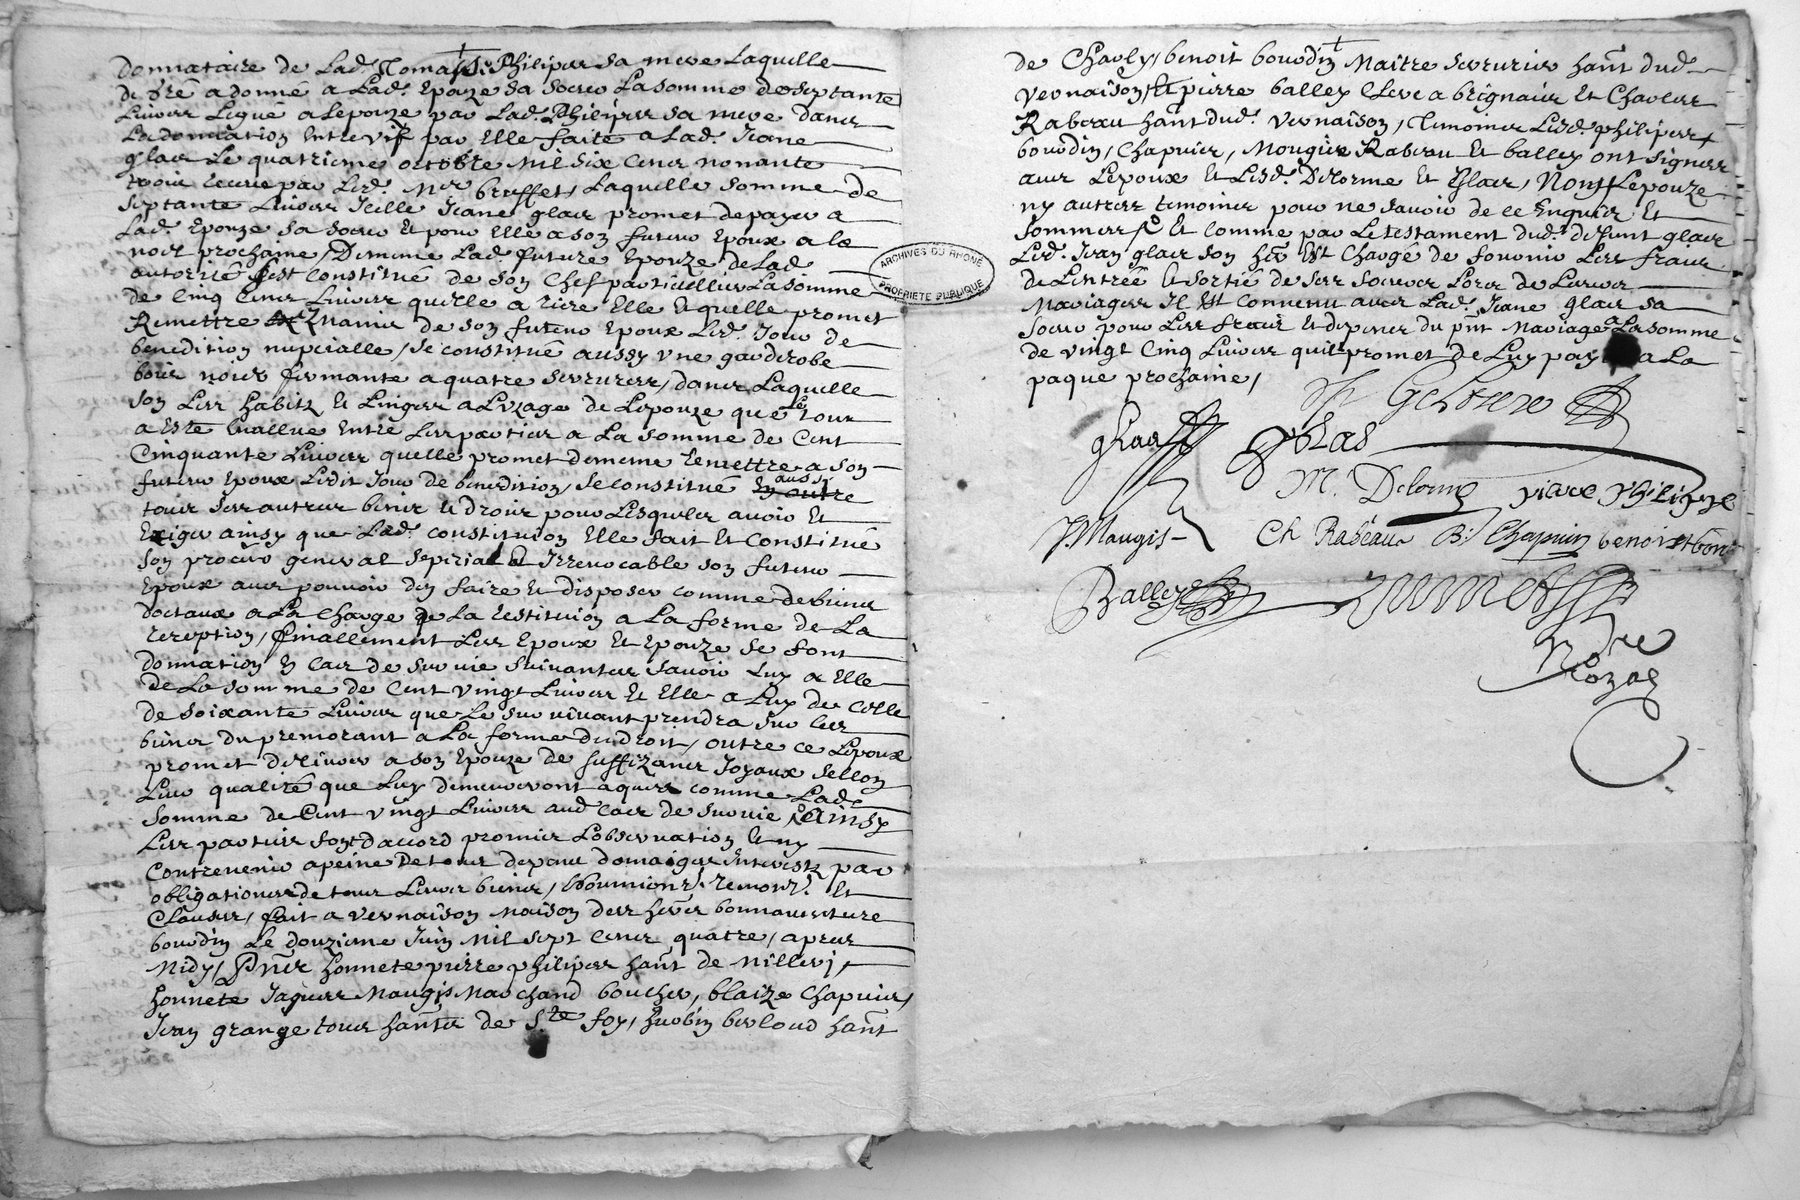 donnataire de Lad. Tomasse Philipes sa mere Laquelle
de gré a donné a Lad. Epouze sa soeur La somme de septante
Livres Legué a Lepouze par Lad. Philipes sa mere dans
La donnation Entrevif par Elle faite a Lad. Jeane
glas Le quatrieme octobre Mil Six Cens nonante
trois receue par Led. Mre bruffet, Laquelle somme de
septante Livres Icelle Jeane glas promet de payer a
Lad. Epouze sa soeur Et pour Elle a son futeur Epoux a la
noel prochaine, De meme Lad. future Epouze de Lad.
autorité sest Constitué de son Chef particullier La somme
de Cinq Cens Livres quelle a riere Elle Et quelle promet
Remettre Ez Mains de son futeur Epoux Led. Jour de
benedition nupcialle, se constitué aussy une garderobe
bois noier fermante a quatre serrures, dans Laquelle
son Les habitz Et Linges a Luzage de Lepouze que Le tout
a Esté Evallué Entre Les parties a La somme de Cent
Cinquante Livres quelle promet de meme remettre a son
futeur Epoux Ledit Jour de benedition, se constitué En outre
aussy
tous ses autres biens Et drois pour Lesqueles avoir Et
Exiger ainsy que Lad. constitution Elle fait Et Constitué
son procur general sepcial Et Irrevocable son futeur
Epoux avec pouvoir den faire Et disposer comme de biens
doctaux a La Charge de La restitution a La forme de La
reception, finallement Les Epoux Et Epouze se font
donnation En Cas de survie suivantes savoir Luy a Elle
de La somme de Cent vingt Livres Et Elle a Luy de Celle
de soixante Livres que Le survivant prendra sur Les
biens du premorant a La forme du droit, outre ce Lepoux
promet delivrer a son Epouze de suffizans Joyaux sellon
Leur qualité que Luy demeureront aquis comme Lad.
somme de Cent vingt Livres aud. Cas de survie, Ainsy
Les parties sont daccord promis Lobservation Et ny
Contrevenir a peine De tous depans domaiges Interestz par
obligations de tous Leurs biens, soumions. renon. Et
Clauses, fait a vernaison Maison des hers bonnaventure
bourdin Le douzieme Juin Mil sept Cens quatre, apres
Midy, Pns honnete pierre philipes hant de Millery
honnete Jaques Maugis Marchand boucher, blaize Chapuis,
Jean grange tous hants de Ste foy, huobin berloud hant
ARCHIVES DU RHONE
PROPRIETE PUBLIQUE
de Charly, benoit bourdin Maitre serrurier hant dud.
vernaison, Et pierre balley Clerc a brignais Et Charles
Rabeau hant dud. vernaison, Temoins Lesd. philipes
bourdin, Chapuis, Mougis Rabeau Et balley ont signer
avec Lepoux Et Lesd. Delorme Et Glas, Non Lepouze
ny autres temoins pour ne savoir de ce Enquis Et
sommes Et comme par Le testament dud. defunt glas
Led. Jean glas son her Est Chargé de fournir Les frais
de Lentreé Et sortié de ses soeurs Lors de Leurs
Mariages Il Est Convenu avec Lad. Jeane glas sa
soeur pour Les frais Et depens du pnt Mariage a La somme
de vingt Cinq Livres quil promet de Luy payer a La
paque prochaine,
glas
M. Delorme pierre Philippe
J. Maugis Ch Rabeau B. Chapuis benoist bour
Balley